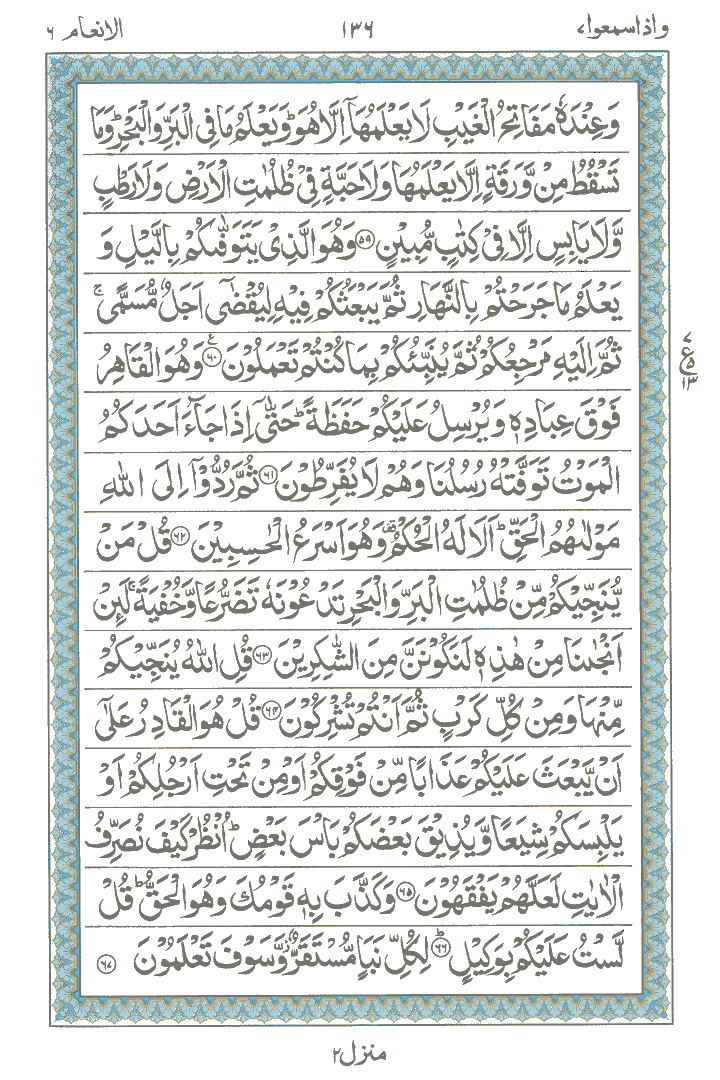 واذاسمعوا٧
١٣٦
الانعام ٦
وَعِنْدَهٗ مَفَاتِحُ الْغَيْبِ لَا يَعْلَمُهَاۤ اِلَّا هُوَ ؕ وَيَعْلَمُ مَا فِى الْبَرِّ وَالْبَحْرِ ؕ وَمَا
تَسْقُطُ مِنْ وَّرَقَةٍ اِلَّا يَعْلَمُهَا وَلَا حَبَّةٍ فِىْ ظُلُمٰتِ الْاَرْضِ وَلَا رَطْبٍ
وَّلَا يَابِسٍ اِلَّا فِىْ كِتٰبٍ مُّبِيْنٍ ﴿٥٩﴾ وَهُوَ الَّذِىْ يَتَوَفّٰٮكُمْ بِالَّيْلِ وَ
يَعْلَمُ مَا جَرَحْتُمْ بِالنَّهَارِ ثُمَّ يَبْعَثُكُمْ فِيْهِ لِيُقْضٰٓى اَجَلٌ مُّسَمًّى ۚ
ثُمَّ اِلَيْهِ مَرْجِعُكُمْ ثُمَّ يُنَبِّئُكُمْ بِمَا كُنْتُمْ تَعْمَلُوْنَ ﴿٦٠﴾ وَهُوَ الْقَاهِرُ
فَوْقَ عِبَادِهٖ وَيُرْسِلُ عَلَيْكُمْ حَفَظَةً ؕ حَتّٰٓى اِذَا جَآءَ اَحَدَكُمُ
الْمَوْتُ تَوَفَّتْهُ رُسُلُنَا وَهُمْ لَا يُفَرِّطُوْنَ ﴿٦١﴾ ثُمَّ رُدُّوْۤا اِلَى اللّٰهِ
مَوْلٰٮهُمُ الْحَقِّ ؕ اَلَا لَهُ الْحُكْمُ وَهُوَ اَسْرَعُ الْحٰسِبِيْنَ ﴿٦٢﴾ قُلْ مَنْ
يُّنَجِّيْكُمْ مِّنْ ظُلُمٰتِ الْبَرِّ وَالْبَحْرِ تَدْعُوْنَهٗ تَضَرُّعًا وَّخُفْيَةً ۚ لَئِنْ
اَنْجٰٮنَا مِنْ هٰذِهٖ لَنَكُوْنَنَّ مِنَ الشّٰكِرِيْنَ ﴿٦٣﴾ قُلِ اللّٰهُ يُنَجِّيْكُمْ
مِّنْهَا وَمِنْ كُلِّ كَرْبٍ ثُمَّ اَنْتُمْ تُشْرِكُوْنَ ﴿٦٤﴾ قُلْ هُوَ الْقَادِرُ عَلٰٓى
اَنْ يَّبْعَثَ عَلَيْكُمْ عَذَابًا مِّنْ فَوْقِكُمْ اَوْ مِنْ تَحْتِ اَرْجُلِكُمْ اَوْ
يَلْبِسَكُمْ شِيَعًا وَّيُذِيْقَ بَعْضَكُمْ بَاْسَ بَعْضٍ ؕ اُنْظُرْ كَيْفَ نُصَرِّفُ
الْاٰيٰتِ لَعَلَّهُمْ يَفْقَهُوْنَ ﴿٦٥﴾ وَكَذَّبَ بِهٖ قَوْمُكَ وَهُوَ الْحَقُّ ؕ قُلْ
لَّسْتُ عَلَيْكُمْ بِوَكِيْلٍ ﴿٦٦﴾ لِكُلِّ نَبَاٍ مُّسْتَقَرٌّ وَّسَوْفَ تَعْلَمُوْنَ ﴿٦٧﴾
٧
ع ٥
١٣
منزل٢